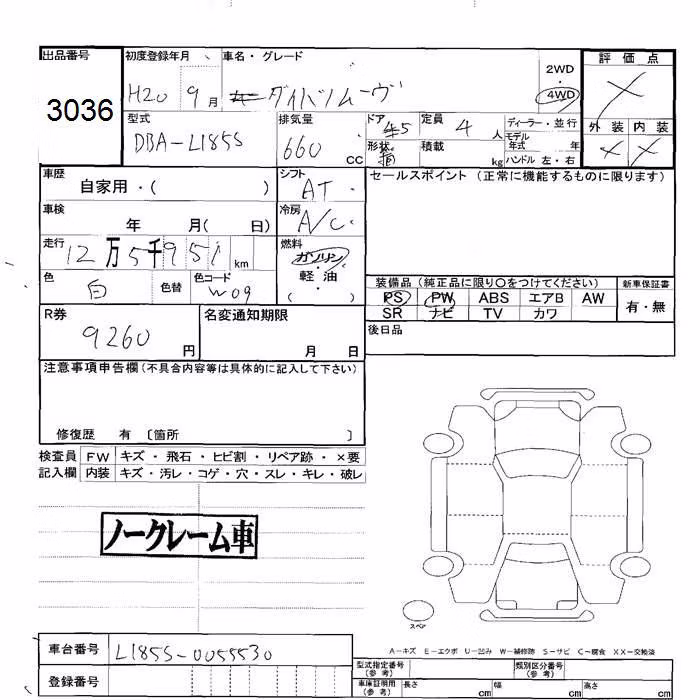 出品番号
3036
初度登録年月
H20 9月
車名・グレード
ダイハツムーヴ
2WD
・
4WD
評価点
×
外装 内装
× ×
型式
DBA-L185S
排気量
660 cc
ドア
5
形状
定員
4人
積載
kg
ディーラー・並行
モデル年式 年
ハンドル 左・右
車歴
自家用・( )
シフト
AT
セールスポイント (正常に機能するものに限ります)
車検
年 月( 日)
冷房
A/C
走行
12万5千951km
燃料
ガソリン
・
軽・油
( )
色
白
色替
色コード
W09
装備品 (純正品に限り○をつけてください)
PS PW ABS エアB AW
SR ナビ TV カワ
新車保証書
有・無
R券
9260円
名変通知期限
月 日
後日品
注意事項申告欄 (不具合内容等は具体的に記入して下さい)
修復歴 有 〔箇所 〕
検査員 FW キズ・飛石・ヒビ割・リペア跡・×要
記入欄 内装 キズ・汚レ・コゲ・穴・スレ・キレ・破レ
ノークレーム車
スペア
A-キズ E-エクボ U-凹み W-補修跡 S-サビ C-腐食 XX-交換済
車台番号
L185S-0055530
登録番号
型式指定番号
(参考)
類別区分番号
(参考)
車庫証明用
(参考)
長さ cm 幅 cm 高さ cm